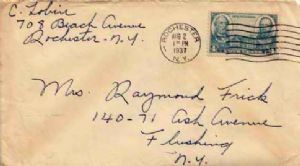 C. Tobin
708 Beach Avenue
Rochester - N.Y.
ROCHESTER
AUG 2
1 PM
1937
N.Y.
Mrs. Raymond Frick
140-71 Ash Avenue
Flushing
N.Y.